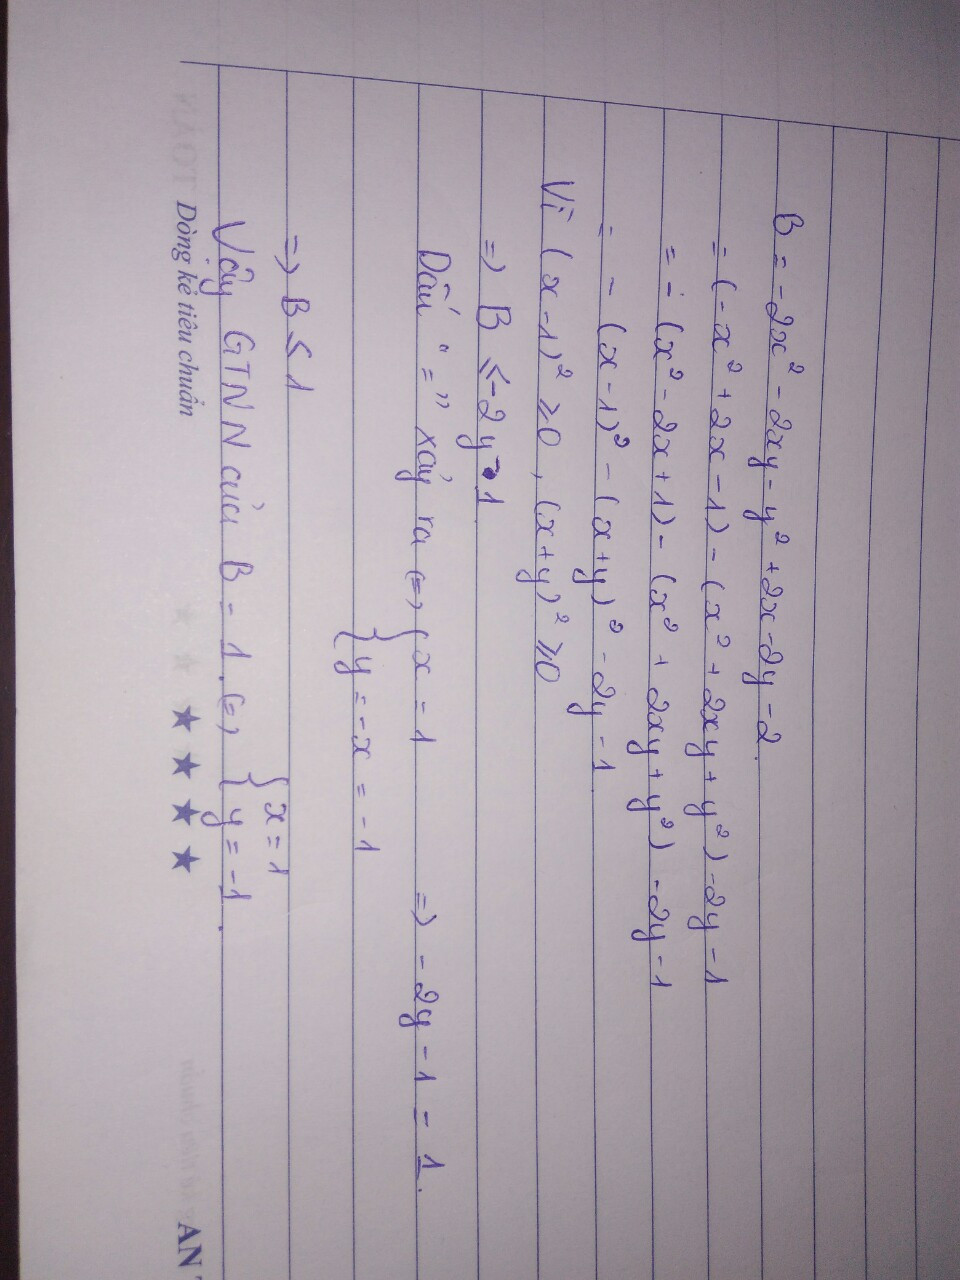 B = -2x² - 2xy - y² + 2x - 2y - 2
= (-x² + 2x - 1) - (x² + 2xy + y²) - 2y - 1
= - (x² - 2x + 1) - (x² + 2xy + y²) - 2y - 1
= - (x - 1)² - (x + y)² - 2y - 1
Vì (x - 1)² ≥ 0, (x + y)² ≥ 0
=> B ≤ -2y - 1
Dấu "=" xảy ra (=) { x = 1 => -2y - 1 = 1.
{ y = -x = -1
=> B ≤ 1
Vậy GTNN của B = 1. (=) { x = 1
{ y = -1.
Dòng kẻ tiêu chuẩn
AN